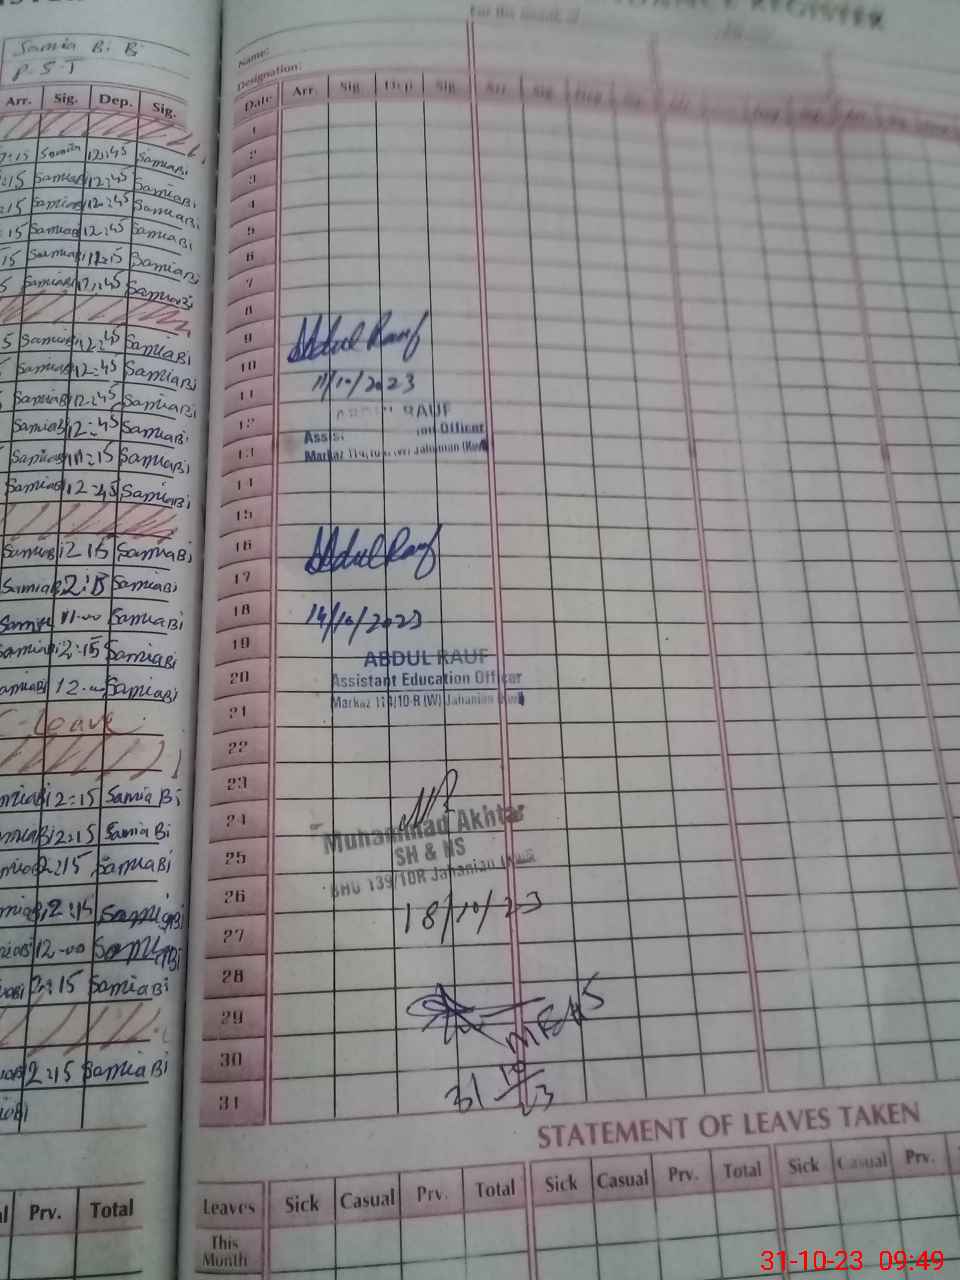 Samia Bi Bi
P.S.T
Arr. Sig. Dep. Sig.
7:15 Samia 12:45 SamiaBi
:15 SamiaBi 12:45 SamiaBi
:15 SamiaBi 12:45 SamiaBi
:15 SamiaBi 12:45 SamiaBi
15 SamiaBi 11:15 SamiaBi
5 SamiaBi 12:45 SamiaBi
5 SamiaBi 12:45 SamiaBi
SamiaBi 12:45 SamiaBi
SamiaBi 12:45 SamiaBi
SamiaBi 12:45 SamiaBi
SamiaBi 11:15 SamiaBi
SamiaBi 12:45 SamiaBi
SamiaBi 12:15 SamiaBi
SamiaBi 2:15 SamiaBi
11-00 SamiaBi
SamiaBi 2:15 SamiaBi
amiaBi 12-00 SamiaBi
Leave
miaBi 2:15 Samia Bi
miaBi 2:15 Samia Bi
miaBi 2:15 SamiaBi
miaBi 2:15 SamiaBi
miaBi 12-00 SamiaBi
iaBi 2:15 SamiaBi
iaBi 2:15 SamiaBi
iaBi
Prv. Total
REGISTER
For the month of
Name:
Designation:
Date Arr. Sig. Dep. Sig. Arr. Sig. Dep. Sig.
1
2
3
4
5
6
7
8
9
10
11
12
13
14
15
16
17
18
19
20
21
22
23
24
25
26
27
28
29
30
31
Abdul Rauf
11/10/2023
RAUF
Officer
Markaz Jahanian
Abdul Rauf
14/10/2023
ABDUL RAUF
Assistant Education Officer
Markaz 114/10-R (W) Jahanian
Muhammad Akhtar
SH & NS
BHU 139/10R Jahanian
18/10/23
31 10
23
STATEMENT OF LEAVES TAKEN
Leaves Sick Casual Prv. Total Sick Casual Prv. Total Sick Casual Prv.
This
Month
31-10-23 09:49